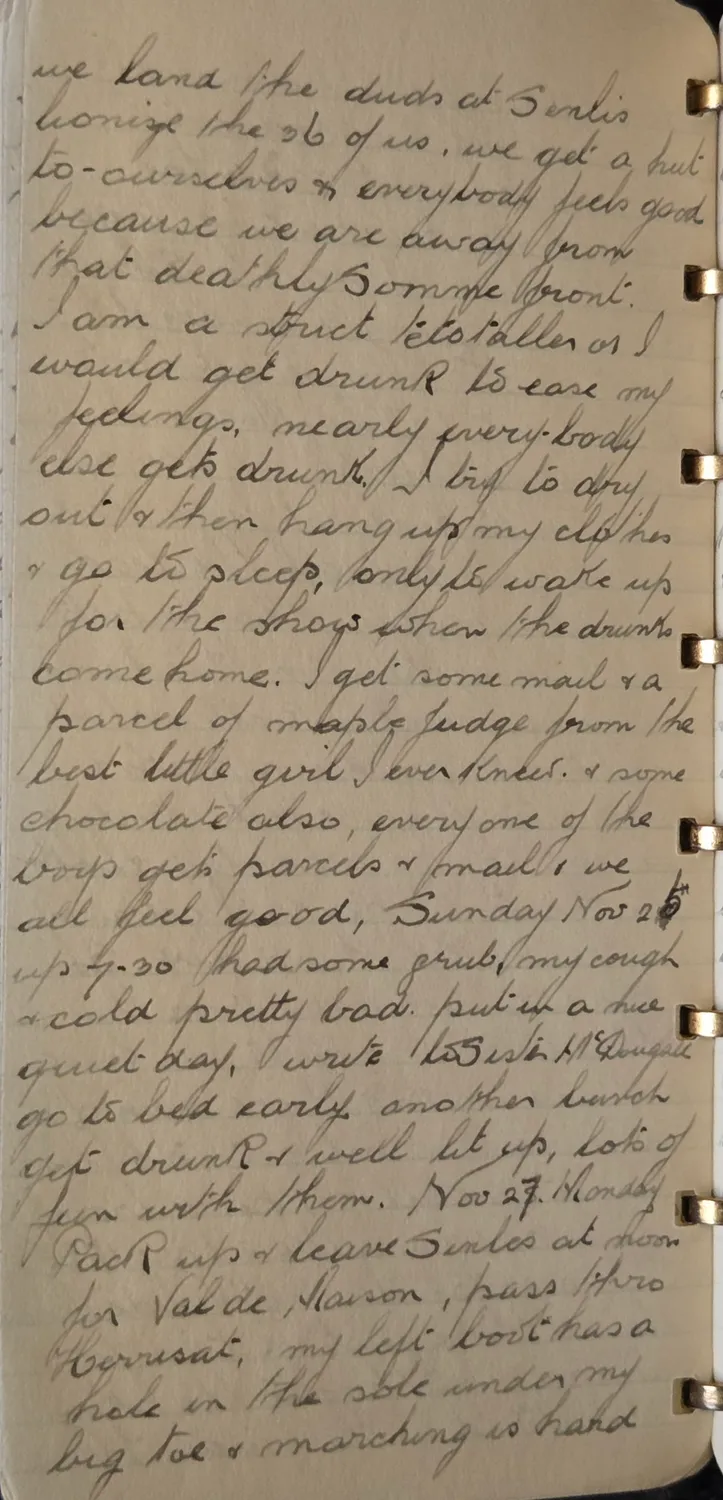 we land the duds at Senlis
lionize the 36 of us. we get a hut
to-ourselves & everybody feels good
because we are away from
that deathly Somme front.
I am a strict tetotaller or I
would get drunk to ease my
feelings, nearly every-body
else gets drunk. I try to dry
out & then hang up my clothes
& go to sleep, only to wake up
for the show when the drunks
come home. I get some mail & a
parcel of maple fudge from the
best little girl I ever knew. & some
chocolate also, everyone of the
boys gets parcels & mail & we
all feel good, Sunday Nov 26th
up 7-30 had some grub, my cough
& cold pretty bad. put in a nice
quiet day, write to Sister McDougall
go to bed early another bunch
get drunk & well lit up, lots of
fun with them. Nov 27. Monday
Pack up & leave Senles at noon
for Val de Maison, pass thro
Herrisat, my left boot has a
hole in the sole under my
big toe & marching is hard